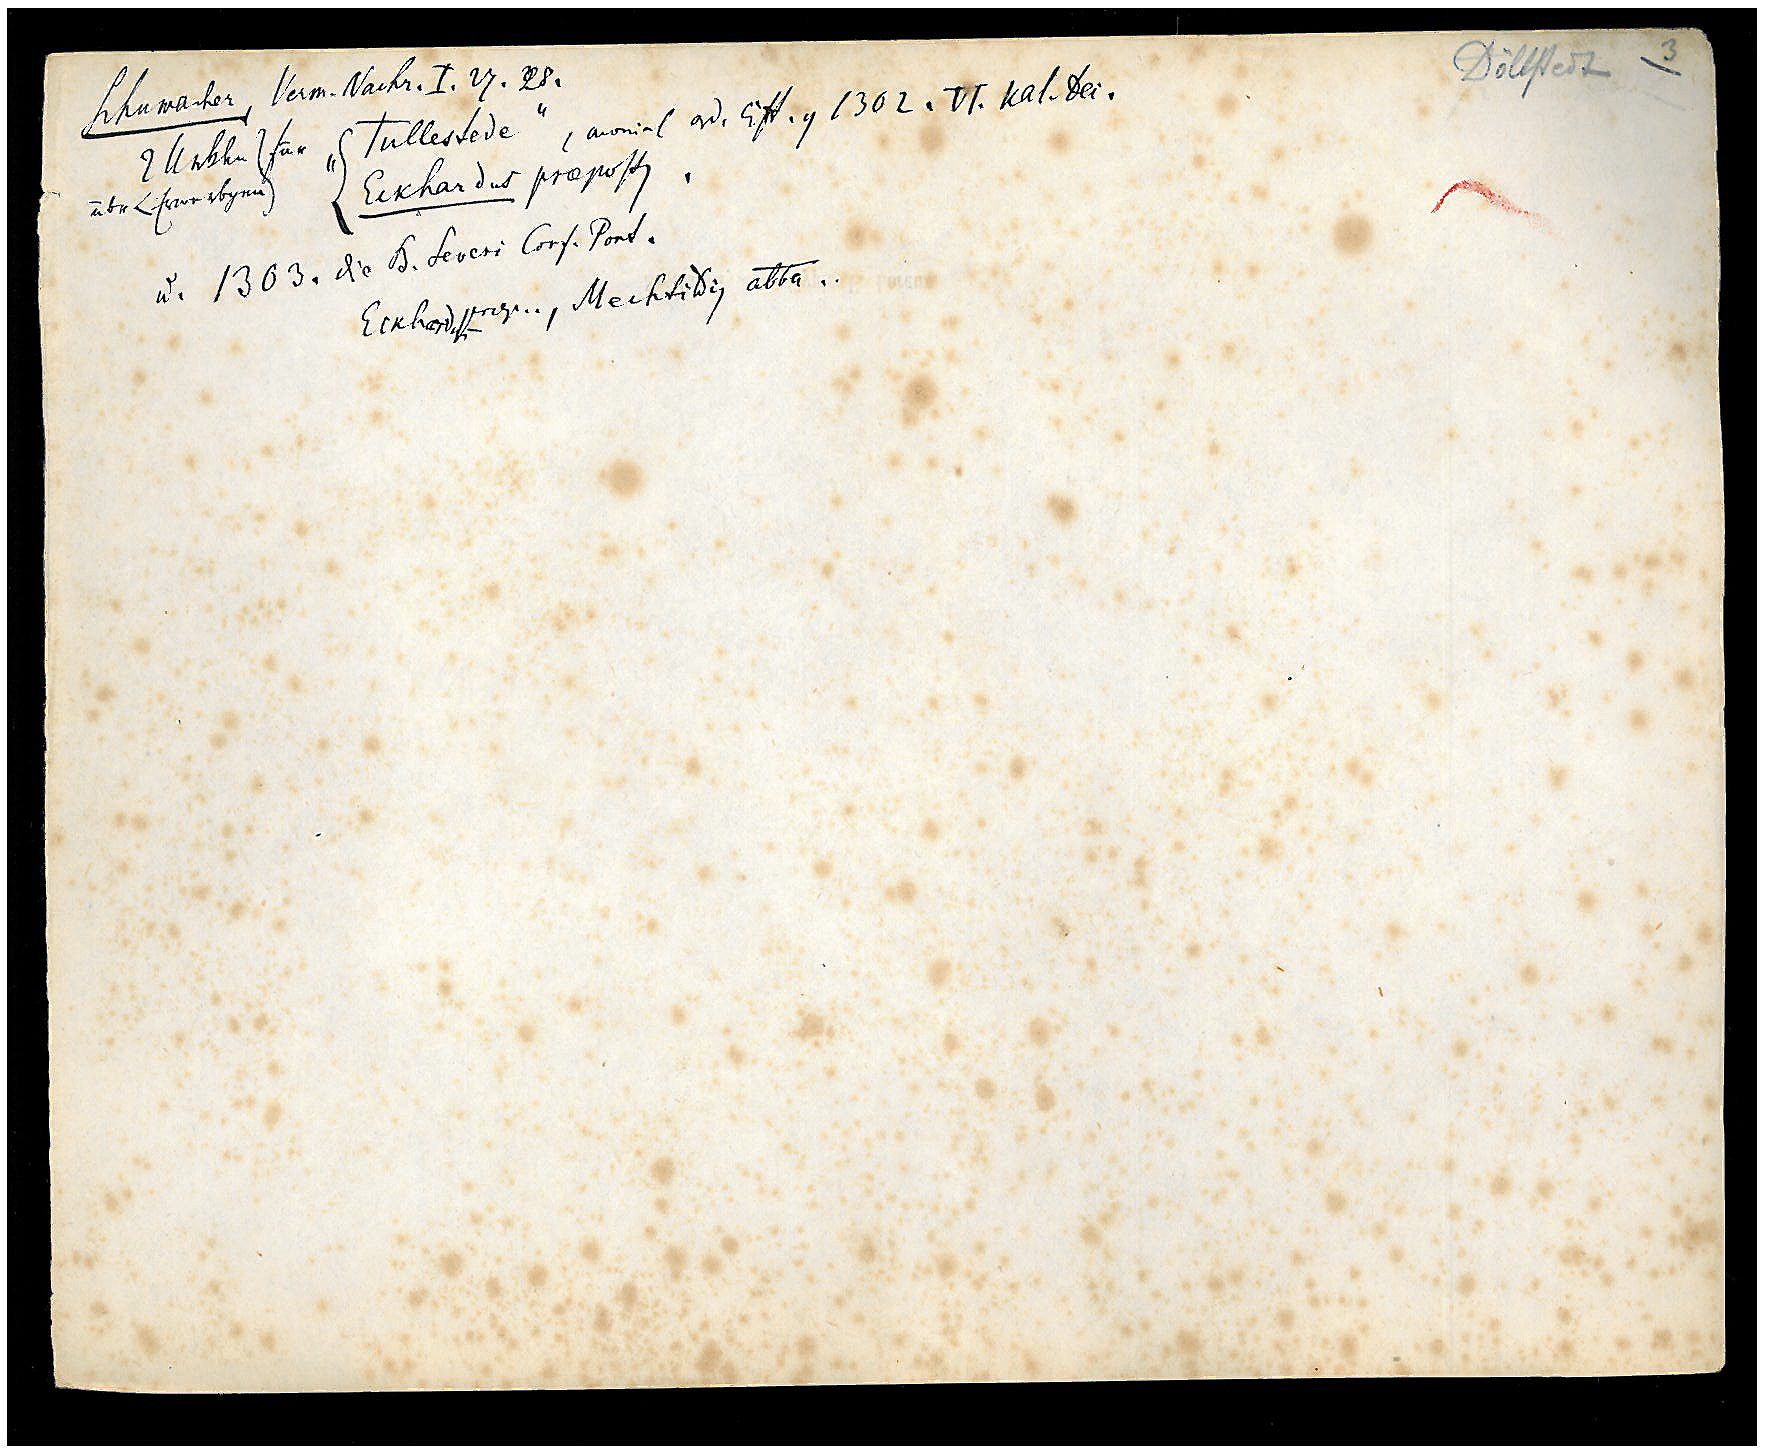 Döllstedt 3
Schumacher, Verm. Nachr. I. 27. 28.
2 Urkkn für „Tullestede“, monial ord. Cist. 1302. VI. Kal. Dec.
übr Erwerbgen Eckhardus præpost9.
u. 1303. die B. Severi Conf. Pont.
Eckhard, Mechtildis abba..